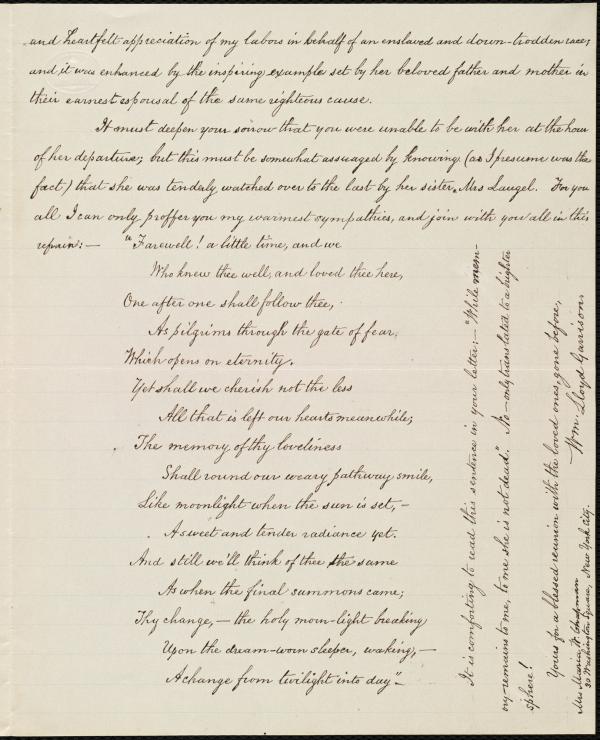 and heartfelt appreciation of my labors in behalf of an enslaved and down-trodden race;
and it was enhanced by the inspiring example set by her beloved father and mother in
their earnest espousal of the same righteous cause.
It must deepen your sorrow that you were unable to be with her at the hour
of her departure; but this must be somewhat assuaged by knowing (as I presume was the
fact) that she was tenderly watched over to the last by her sister, Mrs Laugel. For you
all I can only proffer you my warmest sympathies, and join with you all in this
refrain:—
"Farewell! a little time, and we
Who knew thee well, and loved thee here,
One after one shall follow thee,
As pilgrims through the gate of fear,
Which opens on eternity.
Yet shall we cherish not the less
All that is left our hearts meanwhile;
The memory of thy loveliness
Shall round our weary pathway smile,
Like moonlight when the sun is set,—
A sweet and tender radiance yet.
And still we'll think of thee the same
As when the final summons came;
Thy change,— the holy morn-light breaking
Upon the dream-worn sleeper, waking,—
A change from twilight into day."
It is comforting to read this sentence in your letter:— "While mem-
ory remains to me, to me she is not dead." No — only translated to a higher
sphere!
Yours for a blessed reunion with the loved ones, gone before,
Wm. Lloyd Garrison.
Mrs Maria W. Chapman
Washington Square, New York City.